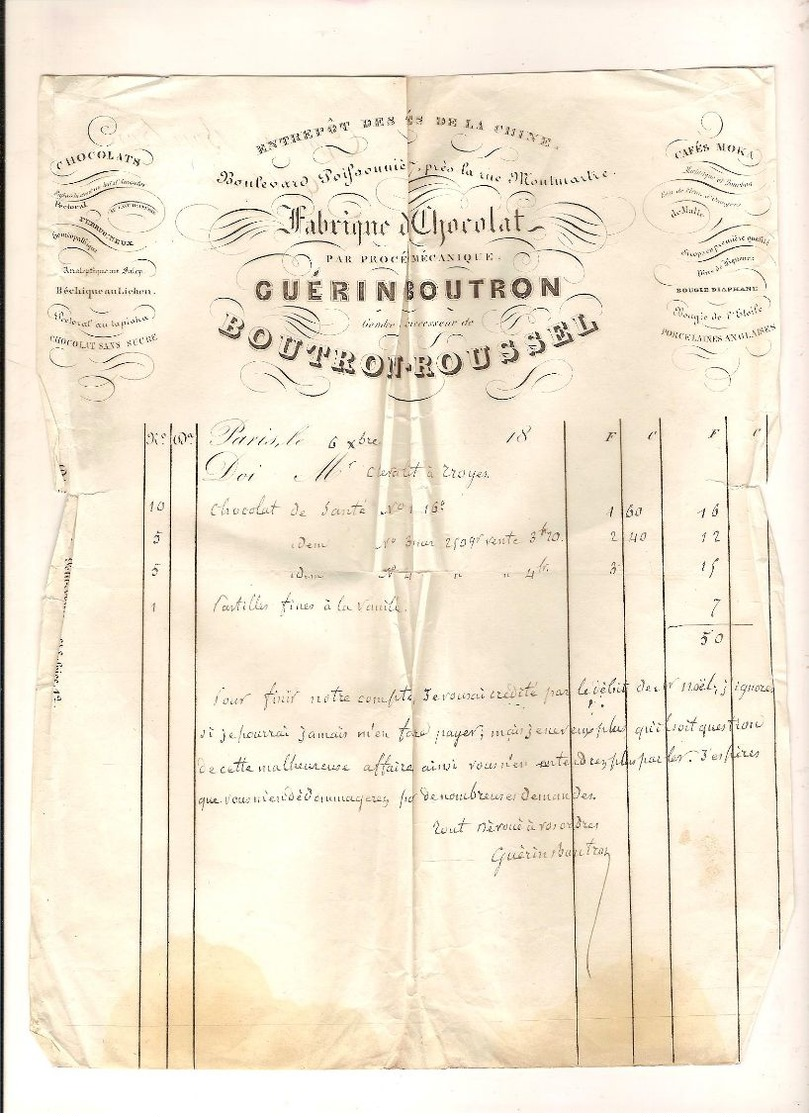 ENTREPÔT DES ÉS DE LA CHINE.
Boulevard Poissonniè, près la rue Montmartre.
Fabrique d Chocolat
PAR PROCÉ MÉCANIQUE.
GUÉRIN BOUTRON
Gendre Successeur de
BOUTRON-ROUSSEL
CHOCOLATS
Pectoral
FERRUGINEUX
homéopathique
Analeptique au Salep
Béchique au Lichen.
Pectoral au tapioka
CHOCOLAT SANS SUCRE
CAFÉS MOKA
Martinique et Bourbon
de Malte
Sirops en première qualité
BOUGIE DIAPHANE
Bougie de l'Etoile
PORCELAINES ANGLAISES
Nos Des Paris, le 6 xbre 18 F C F C
Doi Mr à Troyes
10 Chocolat de Santé No 1 1 60 16
5 idem No 3 2 40 12
5 idem No 4 " " 4 fr. 3 15
1 Pastilles fines à la vanille. 7
50
Pour finir notre compte, Je vous ai crédité par le débit de Mr noël; j'ignores
si je pourrai jamais m'en faire payer; mais je ne veux plus qu'il soit question
de cette malheureuse affaire ainsi vous n'en entendrez plus parler. J'espères
que vous m'en dédommagerez par de nombreuses demandes.
Tout dévoué à vos ordres
Guérin Boutron